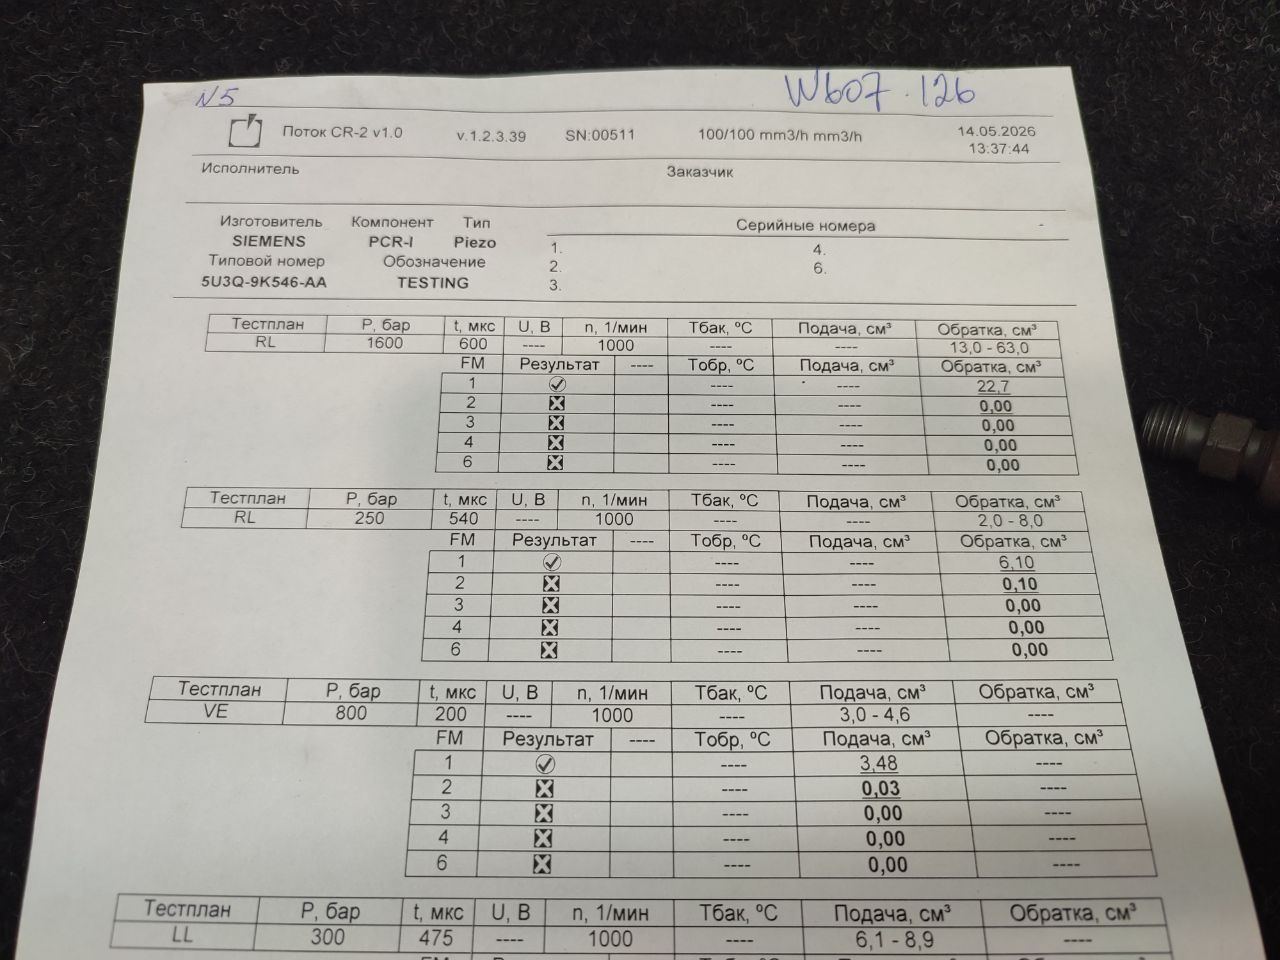 N5 W607.126
Поток CR-2 v1.0 v.1.2.3.39 SN:00511 100/100 mm3/h mm3/h 14.05.2026
13:37:44
Исполнитель Заказчик
Изготовитель Компонент Тип Серийные номера -
SIEMENS PCR-I Piezo 1. 4.
Типовой номер Обозначение 2. 6.
5U3Q-9K546-AA TESTING 3.
Тестплан P, бар t, мкс U, В n, 1/мин Tбак, °C Подача, см³ Обратка, см³
RL 1600 600 ---- 1000 ---- ---- 13,0 - 63,0
FM Результат ---- Тобр, °C Подача, см³ Обратка, см³
1 ---- ---- 22,7
2 ---- ---- 0,00
3 ---- ---- 0,00
4 ---- ---- 0,00
6 ---- ---- 0,00
Тестплан P, бар t, мкс U, В n, 1/мин Tбак, °C Подача, см³ Обратка, см³
RL 250 540 ---- 1000 ---- ---- 2,0 - 8,0
FM Результат ---- Тобр, °C Подача, см³ Обратка, см³
1 ---- ---- 6,10
2 ---- ---- 0,10
3 ---- ---- 0,00
4 ---- ---- 0,00
6 ---- ---- 0,00
Тестплан P, бар t, мкс U, В n, 1/мин Tбак, °C Подача, см³ Обратка, см³
VE 800 200 ---- 1000 ---- 3,0 - 4,6 ----
FM Результат ---- Тобр, °C Подача, см³ Обратка, см³
1 ---- 3,48 ----
2 ---- 0,03 ----
3 ---- 0,00 ----
4 ---- 0,00 ----
6 ---- 0,00 ----
Тестплан P, бар t, мкс U, В n, 1/мин Tбак, °C Подача, см³ Обратка, см³
LL 300 475 ---- 1000 ---- 6,1 - 8,9 ----